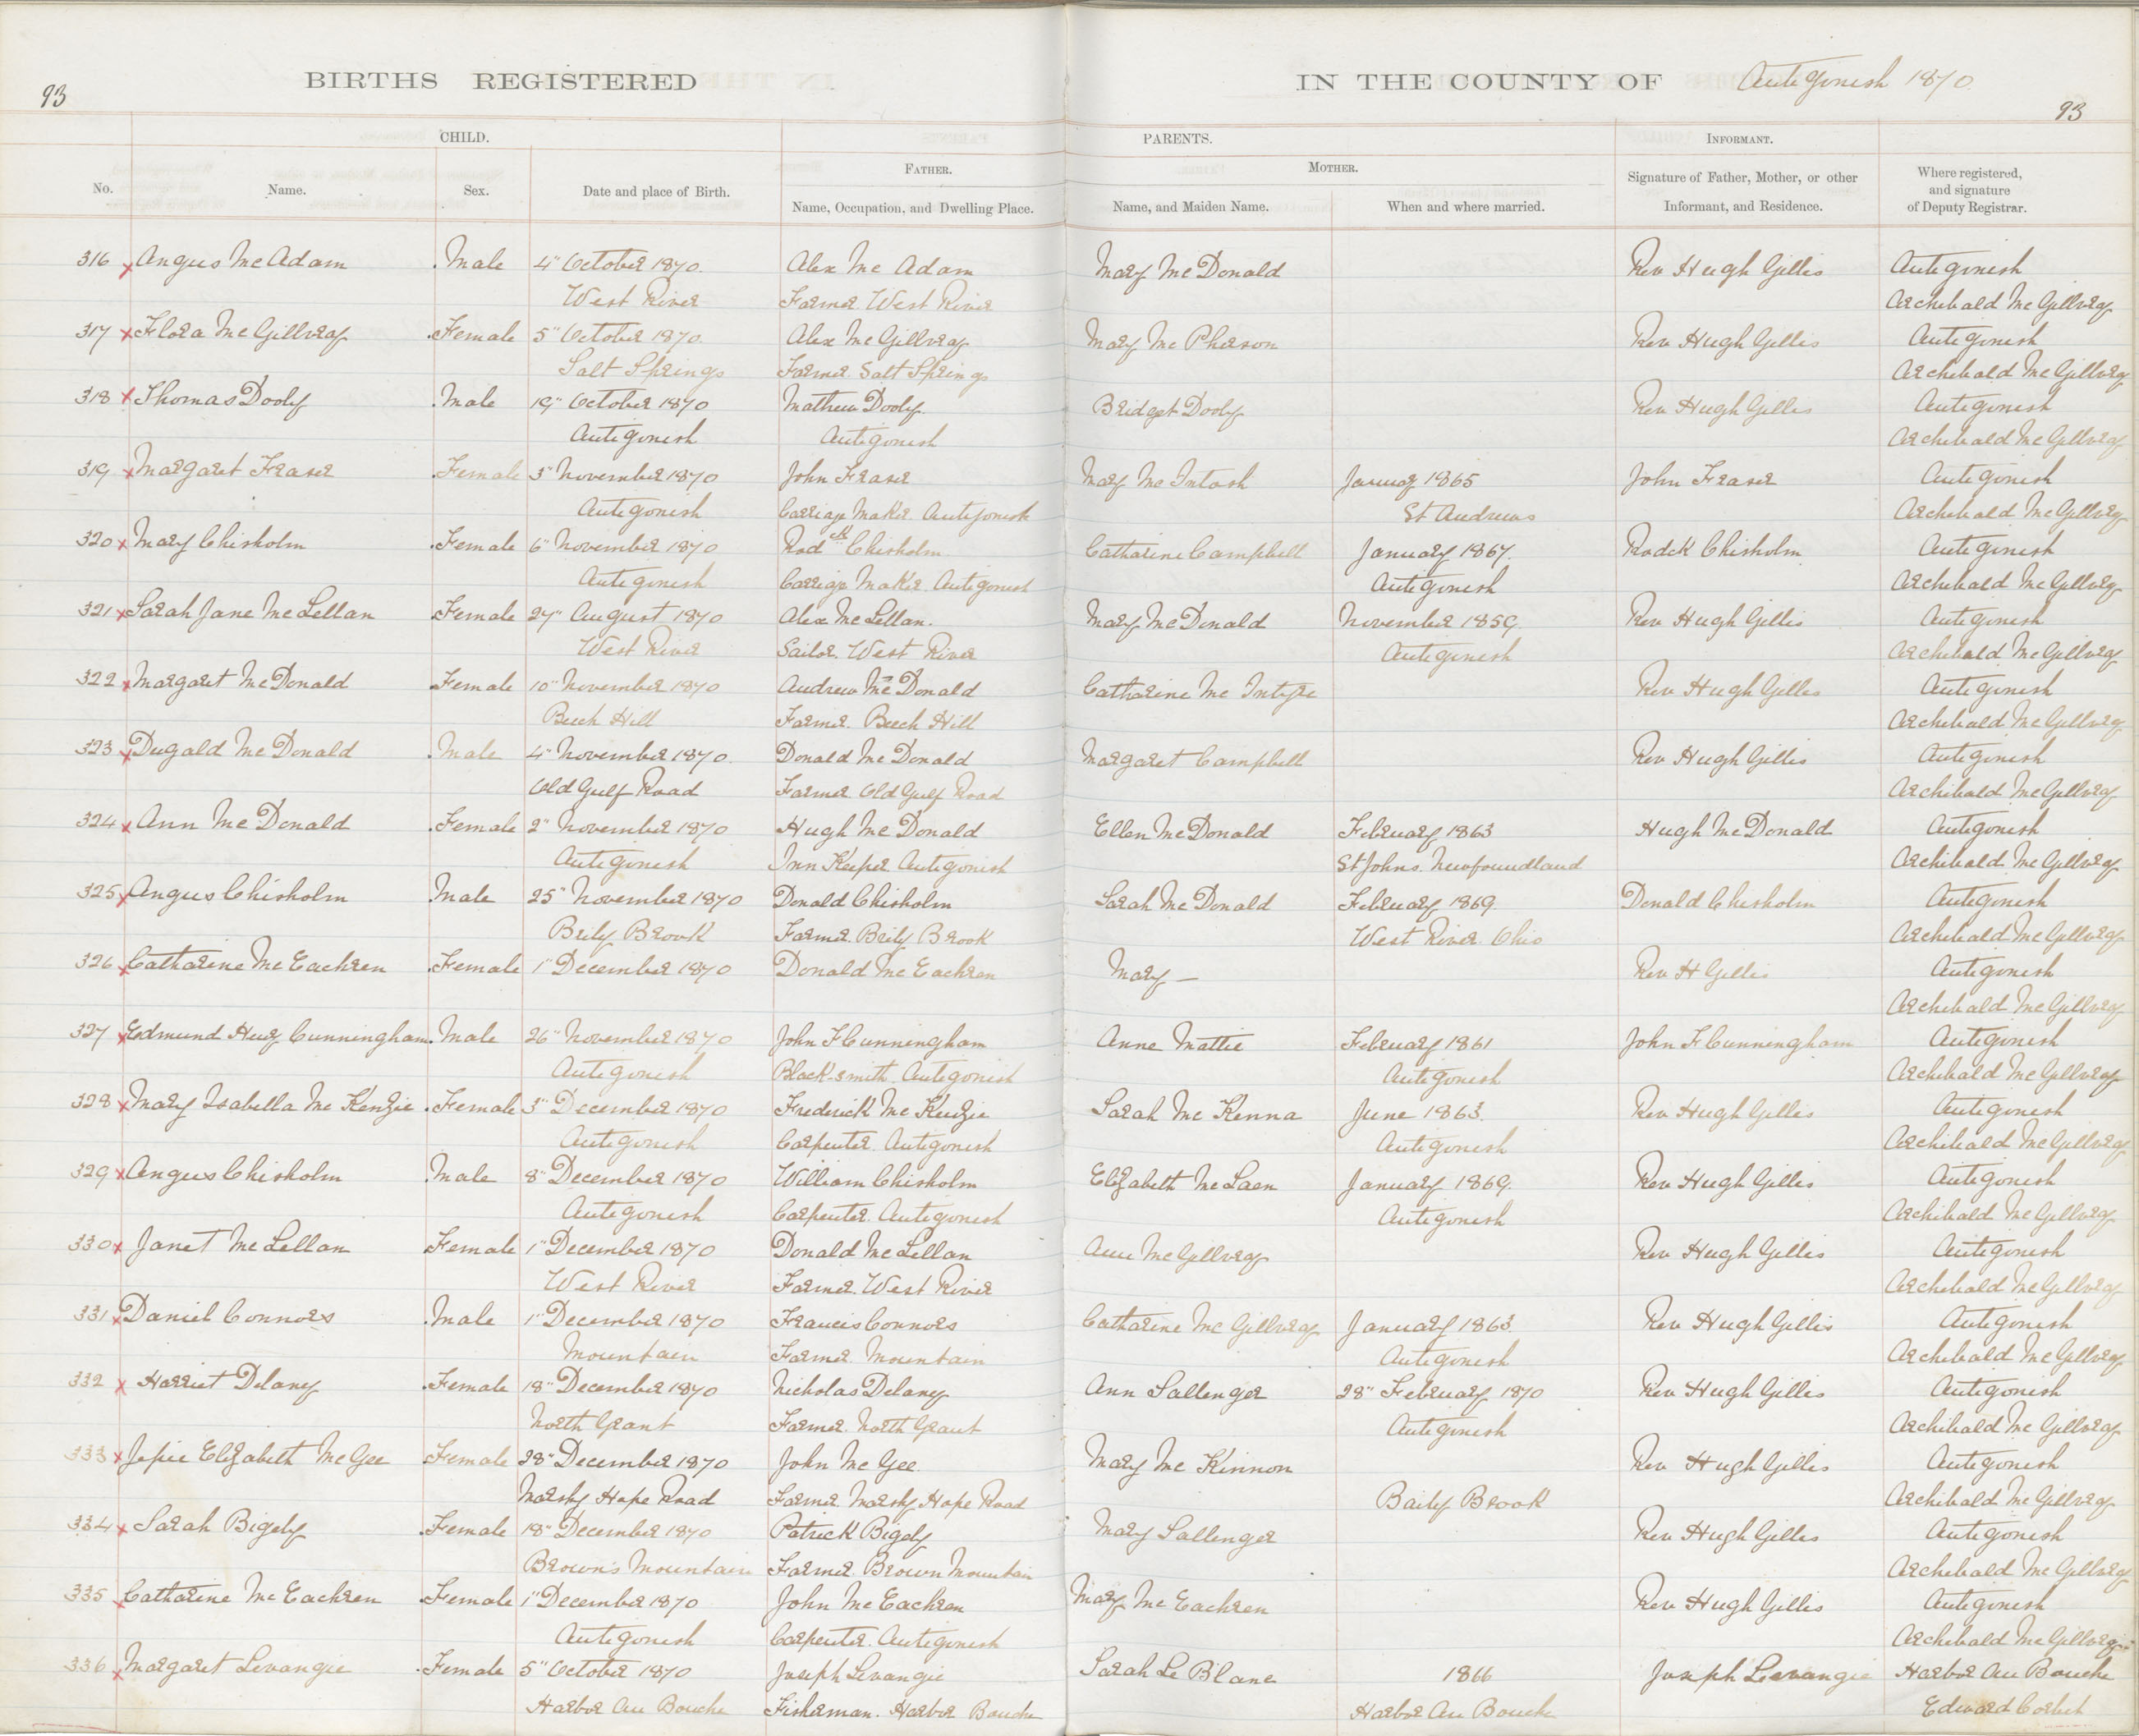 93
BIRTHS REGISTERED IN THE COUNTY OF Antigonish 1870.
93
CHILD. PARENTS. INFORMANT.
FATHER. MOTHER.
No. Name. Sex. Date and place of Birth. Name, Occupation, and Dwelling Place. Name, and Maiden Name. When and where married. Signature of Father, Mother, or other Informant, and Residence. Where registered, and signature of Deputy Registrar.
316 Angus McAdam Male 4" October 1870. Alex McAdam Mary McDonald Rev Hugh Gillis Antigonish
West River Farmer West River Archibald McGillvray
317 Flora McGillvray Female 5" October 1870. Alex McGillvray Mary McPherson Rev Hugh Gillis Antigonish
Salt Springs Farmer. Salt Springs Archibald McGillvray
318 Thomas Dooly Male 19" October 1870 Mathew Dooly Bridget Dooly Rev Hugh Gillis Antigonish
Antigonish Antigonish Archibald McGillvray
319 Margaret Fraser Female 3" November 1870 John Fraser Mary McIntosh January 1865 John Fraser Antigonish
Antigonish Carriage Maker Antigonish St Andrews Archibald McGillvray
320 Mary Chisholm Female 6" November 1870 Rodck Chisholm Catharine Campbell January 1867. Rodck Chisholm Antigonish
Antigonish Carriage Maker Antigonish Antigonish Archibald McGillvray
321 Sarah Jane McLellan Female 27" August 1870 Alex McLellan. Mary McDonald November 1859. Rev Hugh Gillis Antigonish
West River Sailor. West River Antigonish Archibald McGillvray
322 Margaret McDonald Female 10" November 1870 Andrew McDonald Catharine McIntyre Rev Hugh Gillis Antigonish
Beech Hill Farmer. Beech Hill Archibald McGillvray
323 Dugald McDonald Male 4" November 1870. Donald McDonald Margaret Campbell Rev Hugh Gillis Antigonish
Old Gulf Road Farmer Old Gulf Road Archibald McGillvray
324 Ann McDonald Female 2" November 1870 Hugh McDonald Ellen McDonald February 1863 Hugh McDonald Antigonish
Antigonish Inn Keeper Antigonish St Johns. Newfoundland Archibald McGillvray
325 Angus Chisholm Male 25" November 1870 Donald Chisholm Sarah McDonald February 1869. Donald Chisholm Antigonish
Brily Brook Farmer. Brily Brook West River. Ohio Archibald McGillvray
326 Catharine McEachren Female 1" December 1870 Donald McEachren Mary — Rev H Gillis Antigonish
Archibald McGillvray
327 Edmund Huey Cunningham Male 26" November 1870 John F Cunningham Anne Mattie February 1861 John F Cunningham Antigonish
Antigonish Black-smith Antigonish Antigonish Archibald McGillvray
328 Mary Isabella McKenzie Female 3" December 1870 Frederick McKenzie Sarah McKenna June 1863. Rev Hugh Gillis Antigonish
Antigonish Carpenter. Antigonish Antigonish Archibald McGillvray
329 Angus Chisholm Male 8" December 1870 William Chisholm Elizabeth McLaen January 1869. Rev Hugh Gillis Antigonish
Antigonish Carpenter. Antigonish Antigonish Archibald McGillvray
330 Janet McLellan Female 1" December 1870 Donald McLellan Ann McGillvray Rev Hugh Gillis Antigonish
West River Farmer. West River Archibald McGillvray
331 Daniel Connors Male 1" December 1870 Francis Connors Catharine McGillvray January 1863. Rev Hugh Gillis Antigonish
Mountain Farmer. Mountain Antigonish Archibald McGillvray
332 Harriet Delaney Female 18" December 1870 Nicholas Delaney Ann Sallenger 28" February 1870 Rev Hugh Gillis Antigonish
North Grant Farmer. North Grant Antigonish Archibald McGillvray
333 Jessie Elizabeth McGee Female 28" December 1870 John McGee. Mary McKinnon Rev Hugh Gillis Antigonish
Marshy Hope Road Farmer Marshy Hope Road Baily Brook Archibald McGillvray
334 Sarah Bigely Female 18" December 1870 Patrick Bigely Mary Sallenger Rev Hugh Gillis Antigonish
Brown's Mountain Farmer. Brown Mountain Archibald McGillvray
335 Catharine McEachren Female 1" December 1870 John McEachren Mary McEachren Rev Hugh Gillis Antigonish
Antigonish Carpenter. Antigonish Archibald McGillvray
336 Margaret Levangie Female 5" October 1870 Joseph Levangie Sarah Le Blanc 1866 Joseph Levangie Harbor Au Bouche
Harbor Au Bouche Fisherman. Harbor Bouche Harbor Au Bouche Edward Corbet